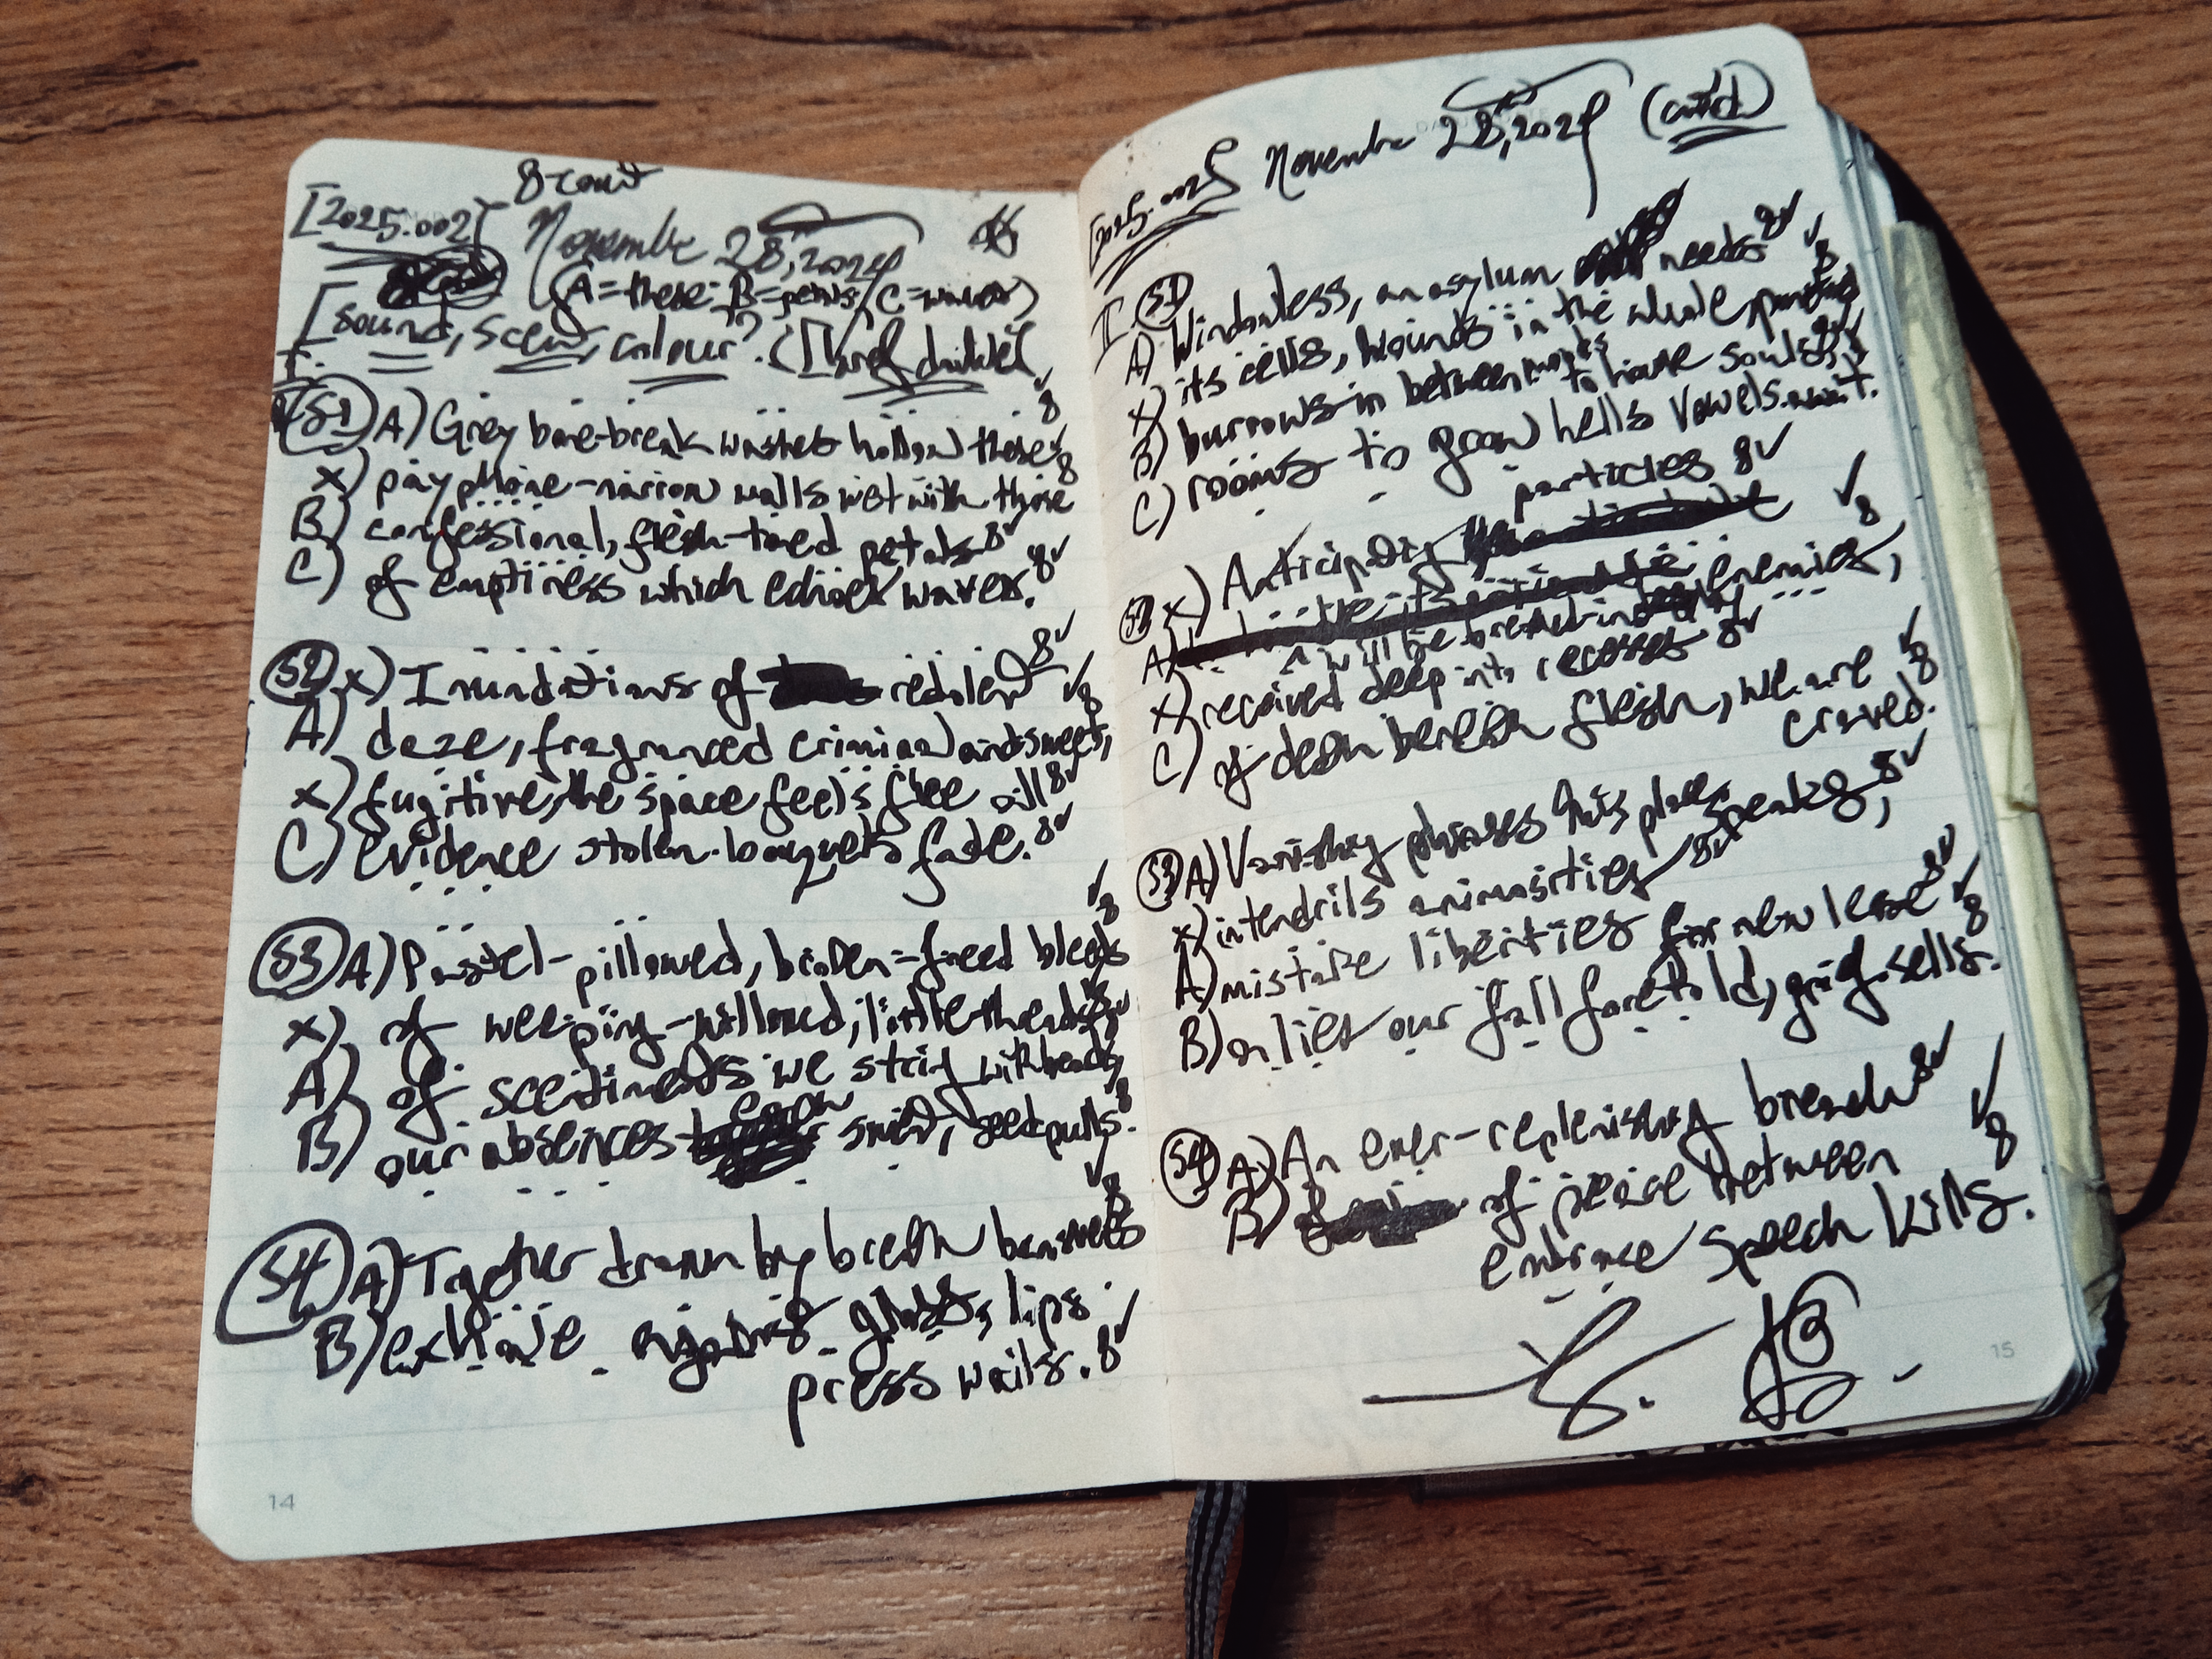 8-count
[2025.002]
November 28, 2024
(A=these; B=petals; C=waves)
[sound, scent, colour?
I.
S1 A) Grey bone-break washes hollow these 8✓
x) pay phone-narrow walls wet with those 8
B) confessional, flesh-toned petals 8✓
C) of emptiness which echoes waves. 8✓
S2 x) Inundations of redolent 8✓
A) daze, fragranced criminal and sweet, ✓8
x) fugitive, the space feels flee all 8✓
C) evidence stolen. bouquets fade. 8✓
S3 A) Pastel-pillowed, broken-freed bleeds ✓8
x) of weeping-willowed, little threads 8✓
A) of scentiments we string with beads,
B) our absences sniff, seed pulls. 8
S4 A) Together drawn by breath banquets ✓8
B) exhale against glass, lips
press walls. 8✓
14
[2025.002] November 28, 2024 (cont'd)
II. S1
A) Windowless, an asylum needs 8✓
x) its cells, wounds in the whole, punctured ✓8
B) burrows in between
to house souls, 8✓
C) rooms to grow hells vowels await.
particles 8✓
S2 x) Anticipating
A) will be breathed in enemies, ✓8
x) received deep into recesses 8✓
C) of death beneath flesh, we are ✓8
craved.
S3 A) Vanishing phrases this place speaks, 8✓
x) in tendrils animosities 8✓
A) mistake liberties for new lease 8✓
B) on lies our fall foretold, grief sells. ✓8
S4 A) An ever-replenishing breach 8✓
B) of peace between ✓8
embrace speech kills.
15